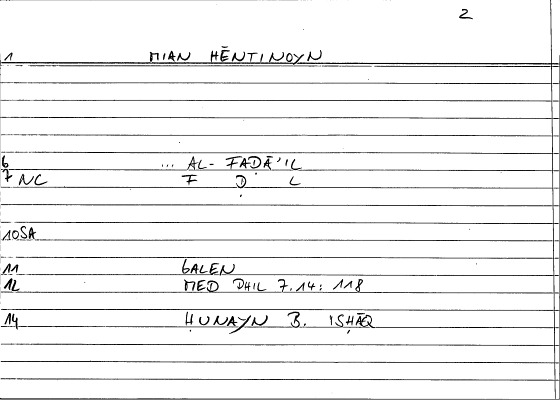 2
1 MIAN HĒNTINOYN
6 ... AL- FAḌĀ'IL
7 NC F Ḍ L
10SA
11 GALEN
12 MED PHIL 7.14: 118
14 ḤUNAYN B. ISḤĀQ